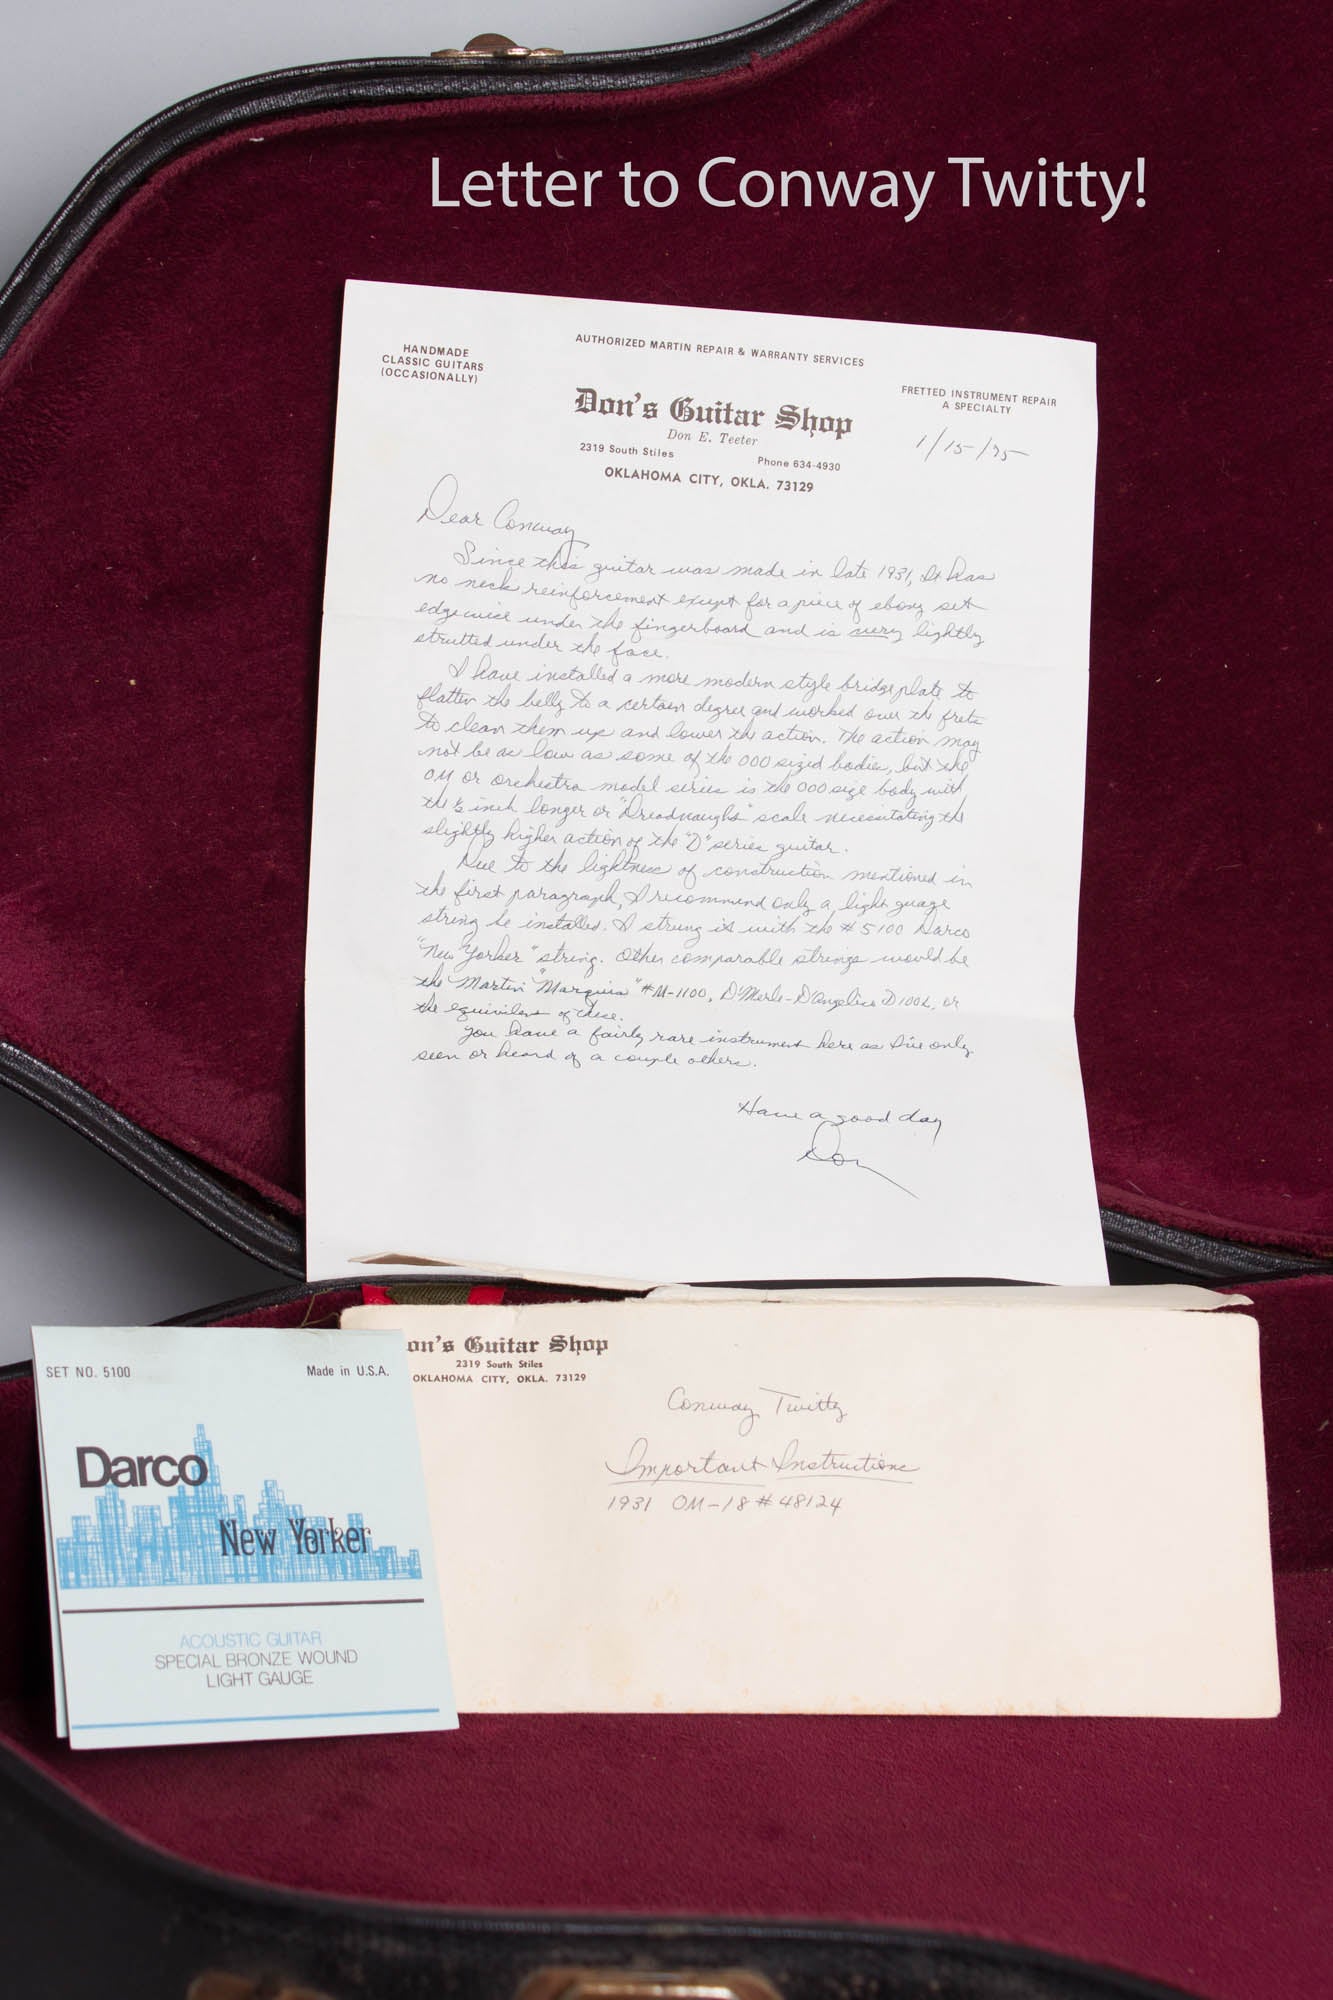 Letter to Conway Twitty!
HANDMADE
CLASSIC GUITARS
(OCCASIONALLY)
AUTHORIZED MARTIN REPAIR & WARRANTY SERVICES
FRETTED INSTRUMENT REPAIR
A SPECIALTY
Don's Guitar Shop
Don E. Teeter
2319 South Stiles Phone 634-4930
OKLAHOMA CITY, OKLA. 73129
1/15/75
Dear Conway
Since this guitar was made in late 1931, it has
no neck reinforcement except for a piece of ebony set
edgewice under the fingerboard and is very lightly
strutted under the face.
I have installed a more modern style bridge plate to
flatten the belly to a certain degree and worked over the frets
to clean them up and lower the action. The action may
not be as low as some of the 000 sized bodies, but the
OM or orchestra model series is the 000 size body with
the ½ inch longer or "Dreadnaught" scale necessitating the
slightly higher action of the "D" series guitar.
Due to the lightness of construction mentioned in
the first paragraph, I recommend only a light guage
string be installed. I strung it with the #5100 Darco
"New Yorker" string. Other comparable strings would be
the Martin "Marquis" #M-1100, D'Merle-D'Angelico D100L, or
the equivilent of these.
You have a fairly rare instrument here as I've only
seen or heard of a couple others.
Have a good day
Don
on's Guitar Shop
2319 South Stiles
OKLAHOMA CITY, OKLA. 73129
Conway Twitty
Important Instructions
1931 OM-18 #48124
SET NO. 5100 Made in U.S.A.
Darco
New Yorker
ACOUSTIC GUITAR
SPECIAL BRONZE WOUND
LIGHT GAUGE